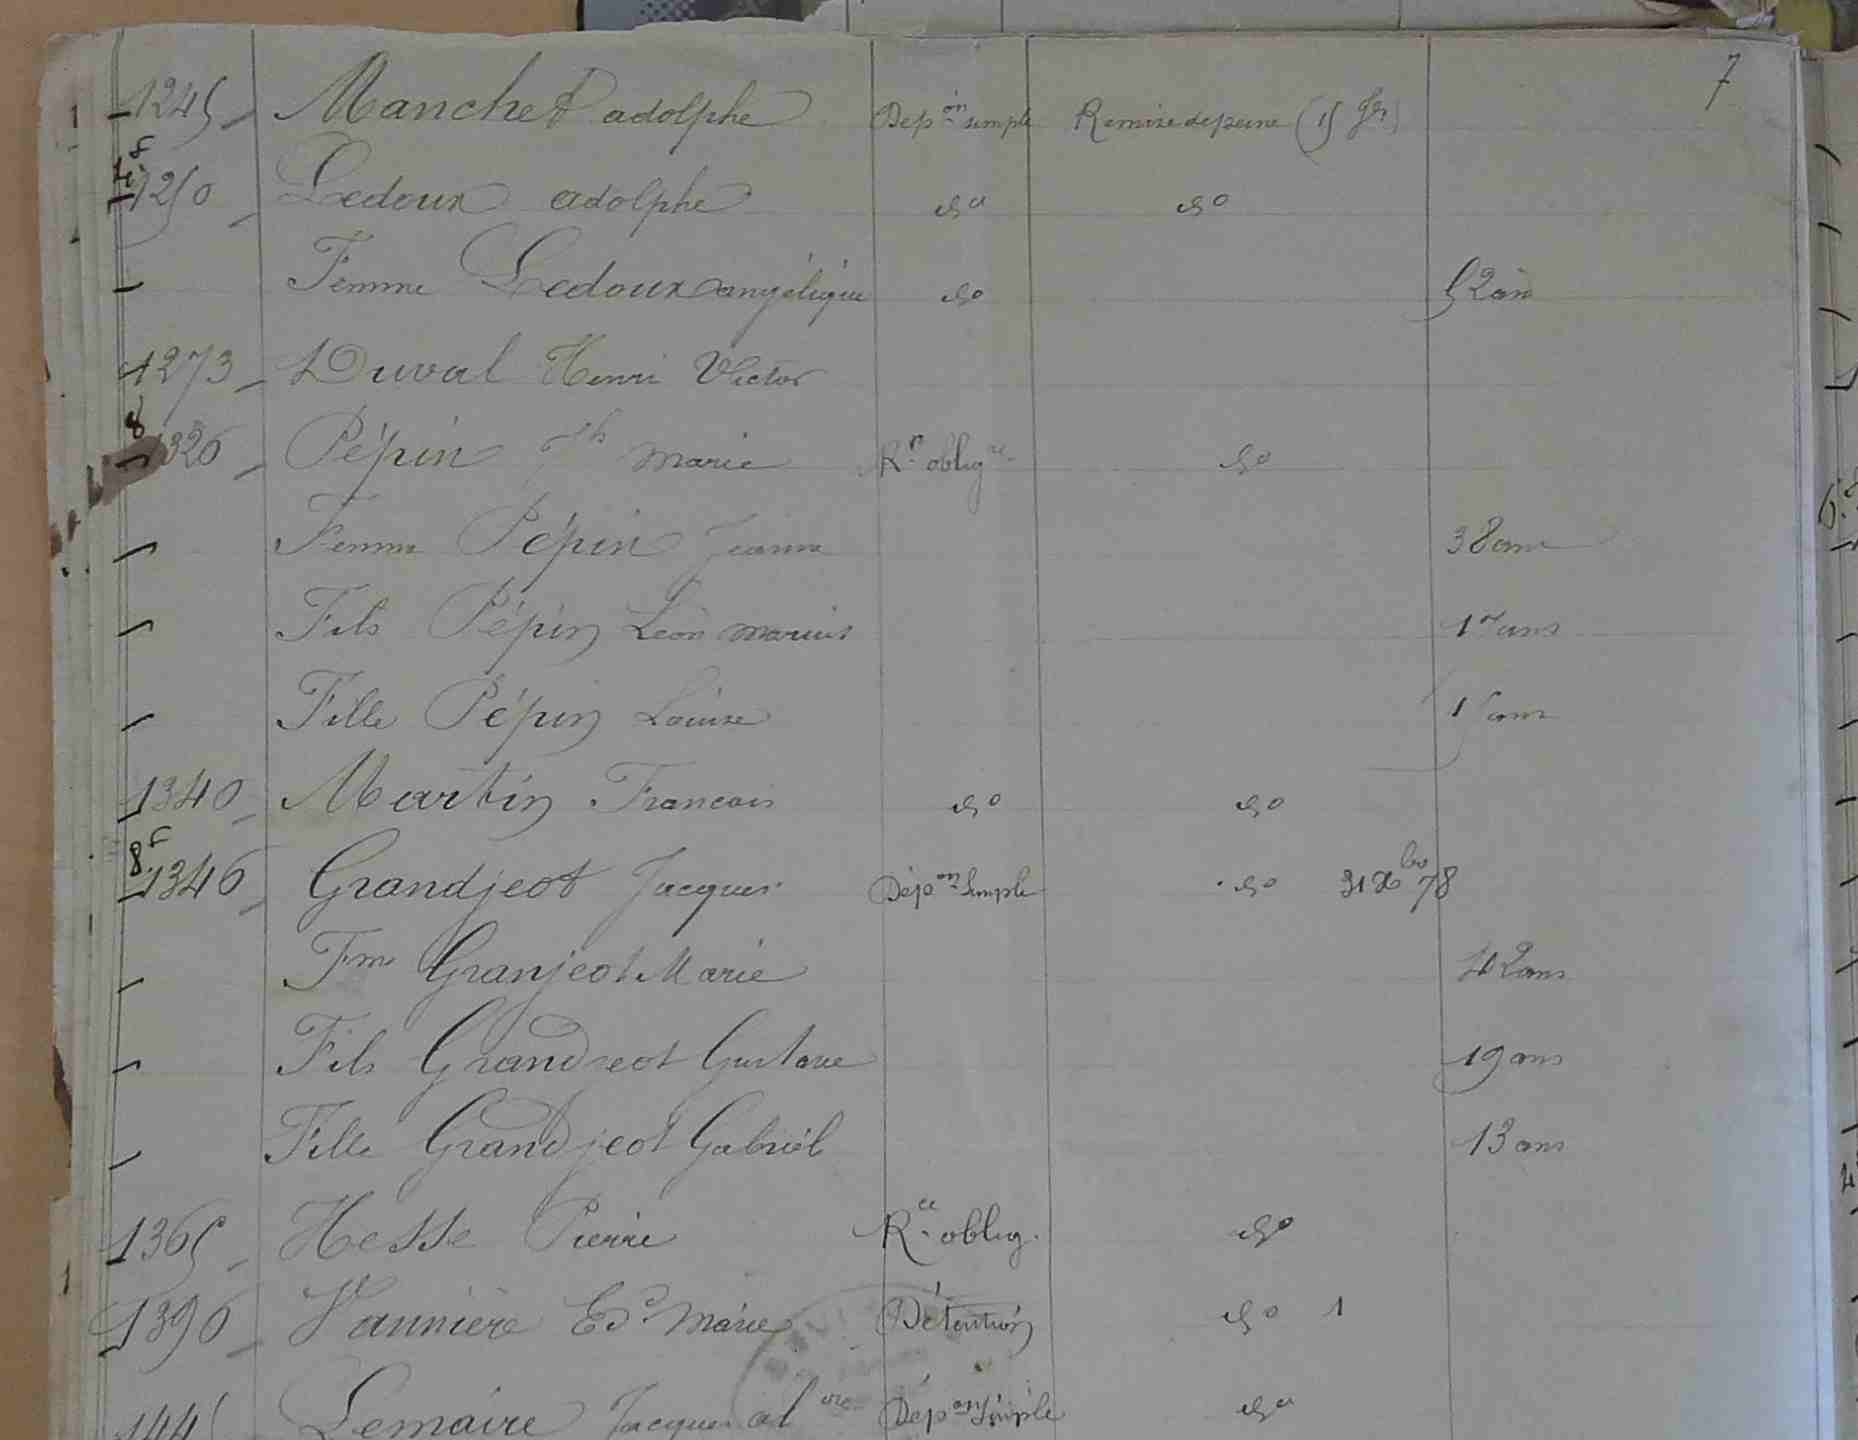 7
1245 Manchet adolphe Dépon simple Remise de peine (15 Jr)
4.f
1250 Ledoux adolphe do do
Femme Ledoux angélique do 52 an
1273 Duval Henri Victor
8
1326 Pépin Jh marie Rn oblig re do
Femme Pépin Jeanne 38 ans
Fils Pépin Léon marius 17 ans
Fille Pépin Louise 15 ans
1340 Martin Francois do do
8f
1346 Grandjeot Jacques Dépon Simple do 31 Xbre 78
Fme Granjeot Marie 42 ans
Fils Grandjeot Gustave 19 ans
Fille Grandjeot Gabriel 13 ans
1365 Hesse Pierre Rce oblig. do
1396 Vannière Ed marie Détention do 1
1445 Lemaire Jacques al Dépon Simple do